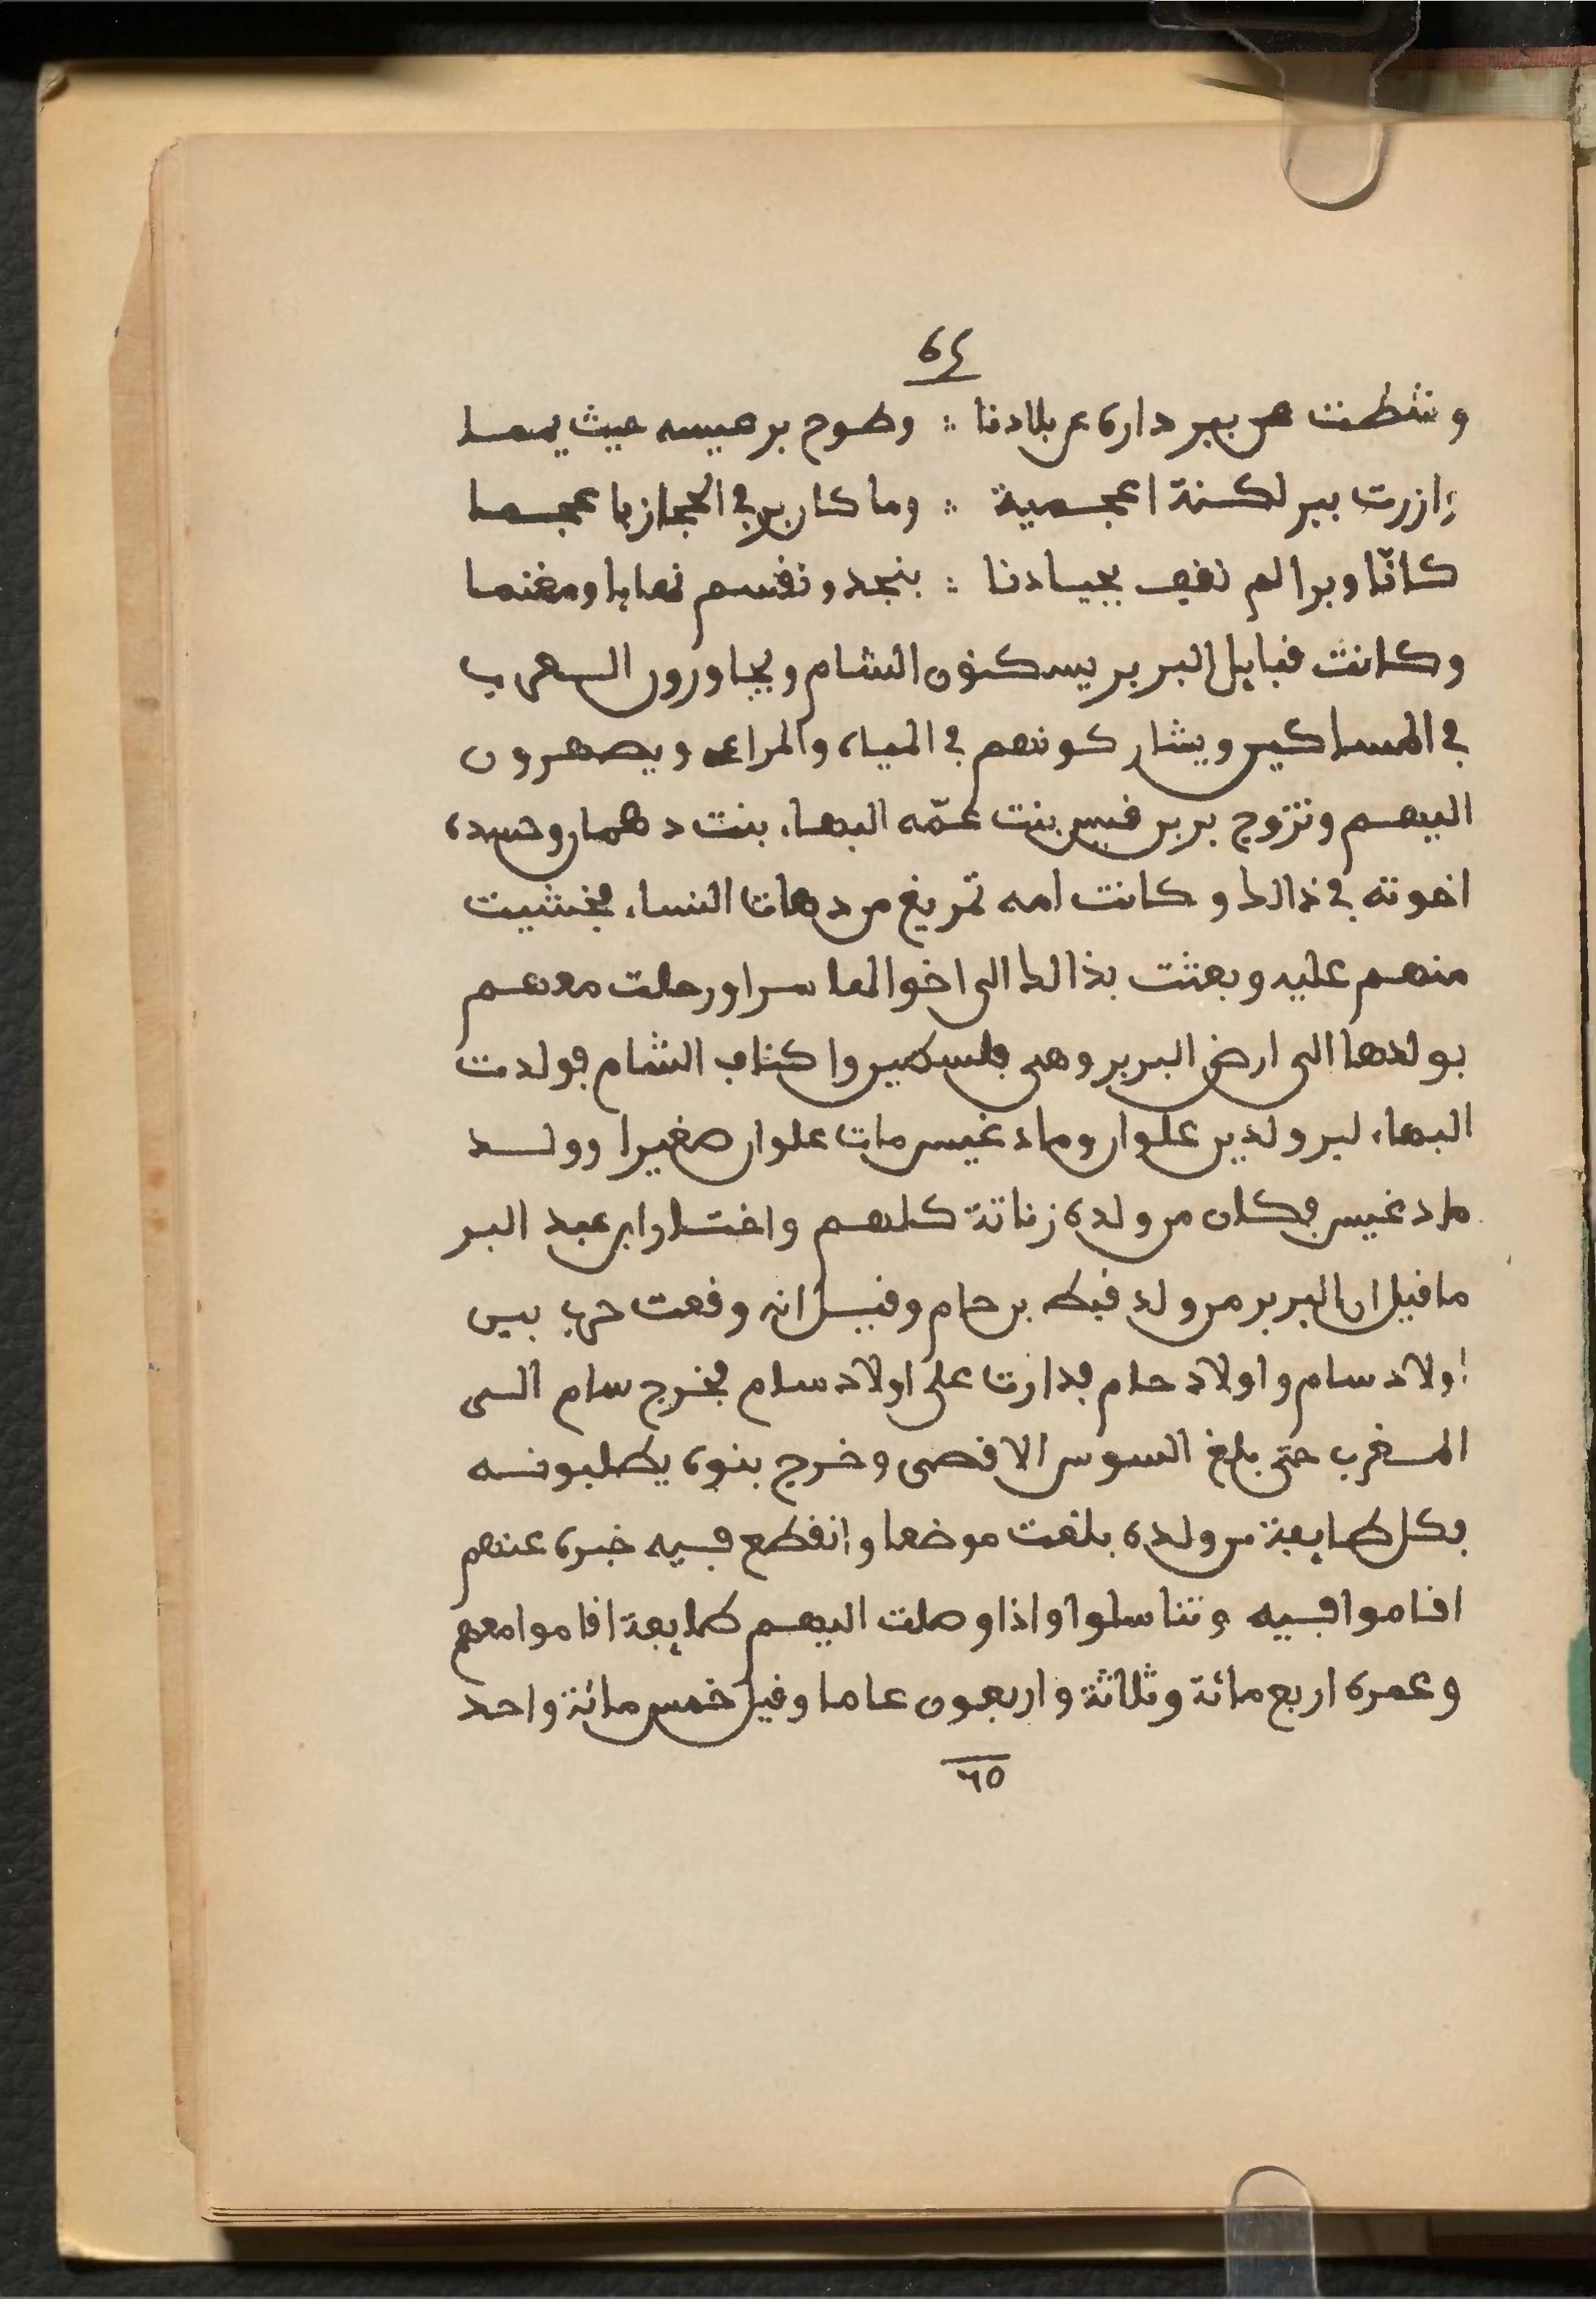 ٦٤
وشطت ببر داره عن بلادنا ؞ وطوح بر نفسه حيث يمما
ازرت ببر لكنة اعجمية ؞ وما كان بر في الحجاز باعجما
كانّا وبرا لم نقف بجيادنا ؞ بنجد ونقسم نهابا ومغنما
وكانت قبايل البربر يسكنون الشام ويجاورون العرب
في المساكين ويشاركونهم في المياه والمراعى ويصهرون
اليهم وتزوج بر بن قيس بنت عمّه البهاء بنت دهمان وحسده
اخوته في ذالك وكانت امه تمريغ من دهات النساء فخشيت
منهم عليه وبعثت بذالك الى اخوالها سرا ورحلت معهم
بولدها الى ارض البربر وهى فلسطين واكناف الشام فولدت
البهاء لبر ولدين علوان ومادغيس مات علوان صغيرا وولد
مادغيس فكان من ولده زناتة كلهم واختار ابن عبد البر
ما قيل ان البربر من ولد قبط بن حام وقيل انه وقعت حرب بين
اولاد سام واولاد حام فدارت على اولاد سام فخرج سام الى
المغرب حتى بلغ السوس الاقصى وخرج بنوه يطلبونه
فكل طايفة من ولده بلغت موضعا وانقطع فيه خبره عنهم
اقاموا فيه وتناسلوا واذا وصلت اليهم طايفة اقاموا معهم
وعمره اربع مائة وثلاثة واربعون عاما وقيل خمس مائة واحد
٦٥